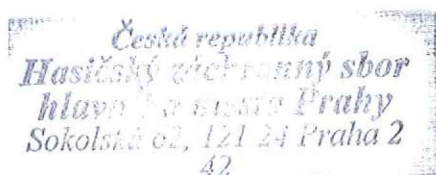 Česká republika
Hasičský záchranný sbor
Prahy
Sokolská 62, 121 24 Praha 2
42